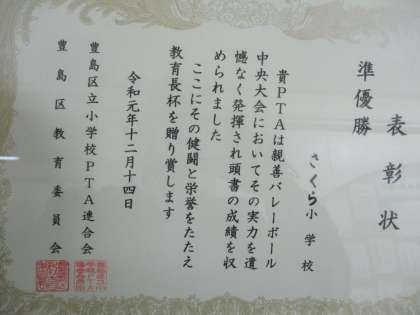 表彰状
準優勝
さくら小学校
貴PTAは親善バレーボール
中央大会においてその実力を遺
憾なく発揮され頭書の成績を収
められました
ここにその健闘と栄誉をたたえ
教育長杯を贈り賞します
令和元年十二月十四日
豊島区立小学校PTA連合会
豊島区教育委員会